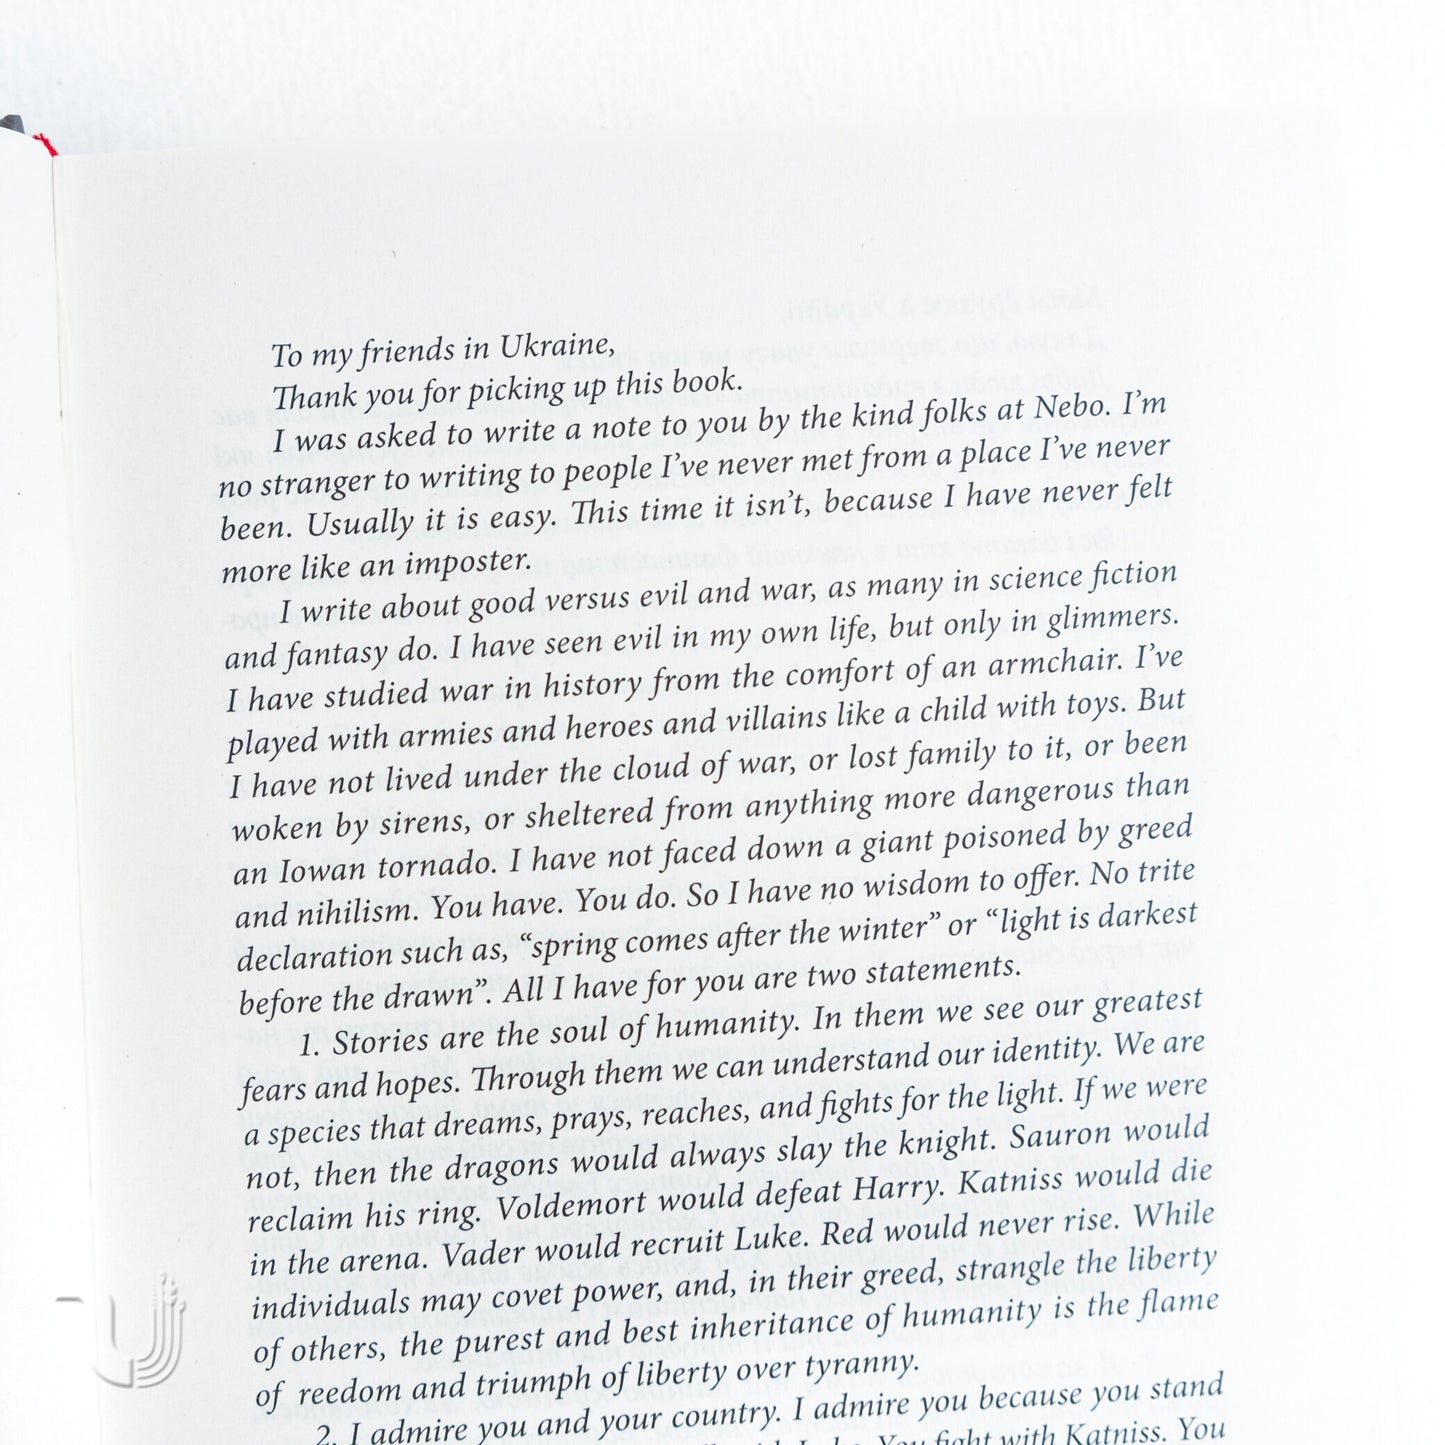 To my friends in Ukraine,
Thank you for picking up this book.
I was asked to write a note to you by the kind folks at Nebo. I’m
no stranger to writing to people I’ve never met from a place I’ve never
been. Usually it is easy. This time it isn’t, because I have never felt
more like an imposter.
I write about good versus evil and war, as many in science fiction
and fantasy do. I have seen evil in my own life, but only in glimmers.
I have studied war in history from the comfort of an armchair. I’ve
played with armies and heroes and villains like a child with toys. But
I have not lived under the cloud of war, or lost family to it, or been
woken by sirens, or sheltered from anything more dangerous than
an Iowan tornado. I have not faced down a giant poisoned by greed
and nihilism. You have. You do. So I have no wisdom to offer. No trite
declaration such as, “spring comes after the winter” or “light is darkest
before the drawn”. All I have for you are two statements.
1. Stories are the soul of humanity. In them we see our greatest
fears and hopes. Through them we can understand our identity. We are
a species that dreams, prays, reaches, and fights for the light. If we were
not, then the dragons would always slay the knight. Sauron would
reclaim his ring. Voldemort would defeat Harry. Katniss would die
in the arena. Vader would recruit Luke. Red would never rise. While
individuals may covet power, and, in their greed, strangle the liberty
of others, the purest and best inheritance of humanity is the flame
of reedom and triumph of liberty over tyranny.
2. I admire you and your country. I admire you because you stand
Luke. You fight with Katniss. You